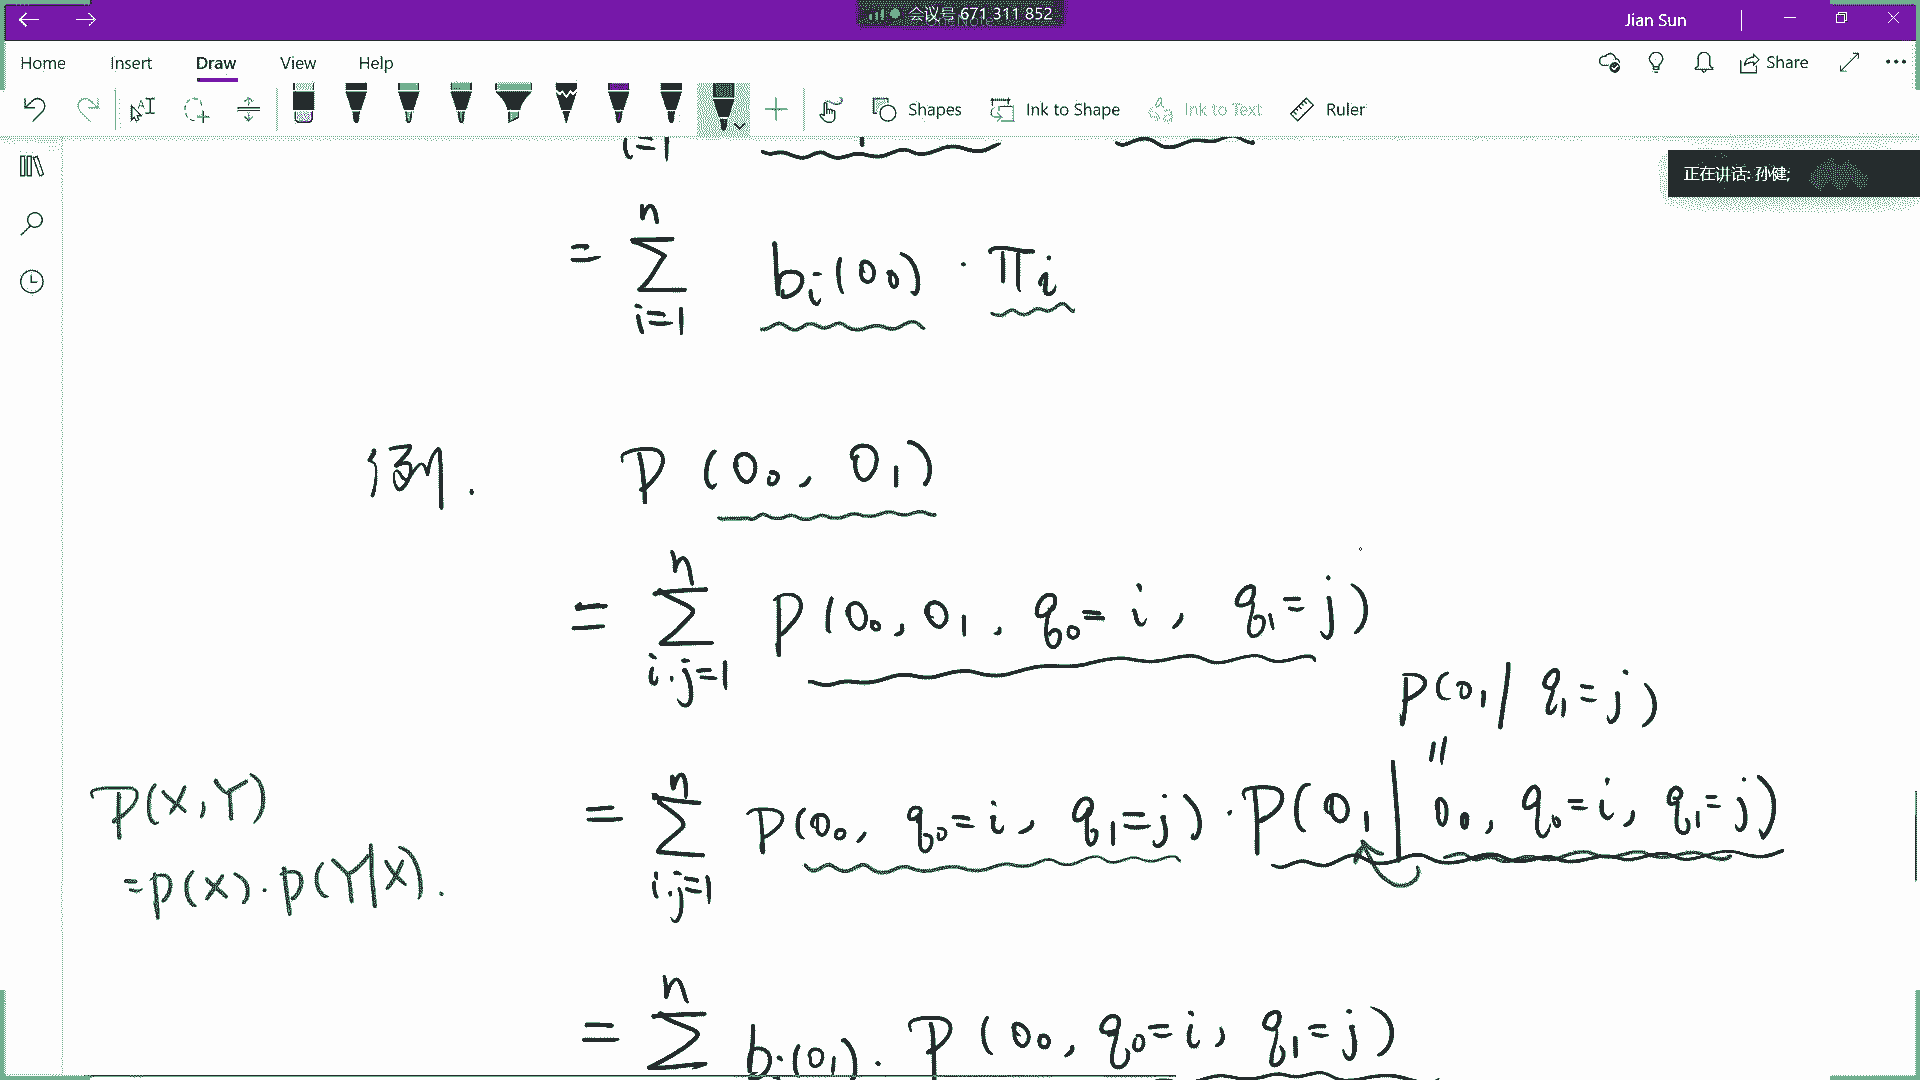 会议号 671 311 852
Jian Sun
Home Insert Draw View Help
Share
Shapes Ink to Shape Ink to Text Ruler
正在讲话: 孙健;
i=1
= ∑ⁿᵢ₌₁ bᵢ(O₀) · πᵢ
例. P(O₀, O₁)
= ∑ⁿᵢ.ⱼ₌₁ P(O₀, O₁, q₀=i, q₁=j)
P(O₁| q₁=j)
"
= ∑ⁿᵢ.ⱼ₌₁ P(O₀, q₀=i, q₁=j) · P(O₁| O₀, q₀=i, q₁=j)
P(X,Y)
=P(X)·P(Y|X).
= ∑ⁿ bⱼ(O₁) · P(O₀, q₀=i, q₁=j)